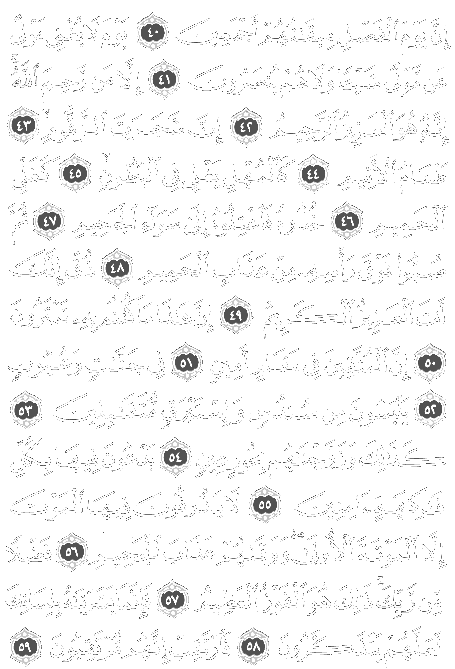 إِنَّ يَوْمَ الْفَصْلِ مِيقَاتُهُمْ أَجْمَعِينَ ٤٠ يَوْمَ لَا يُغْنِي مَوْلًى
عَن مَّوْلًى شَيْئًا وَلَا هُمْ يُنصَرُونَ ٤١ إِلَّا مَن رَّحِمَ اللَّهُ
إِنَّهُ هُوَ الْعَزِيزُ الرَّحِيمُ ٤٢ إِنَّ شَجَرَتَ الزَّقُّومِ ٤٣
طَعَامُ الْأَثِيمِ ٤٤ كَالْمُهْلِ يَغْلِي فِي الْبُطُونِ ٤٥ كَغَلْيِ
الْحَمِيمِ ٤٦ خُذُوهُ فَاعْتِلُوهُ إِلَىٰ سَوَاءِ الْجَحِيمِ ٤٧ ثُمَّ
صُبُّوا فَوْقَ رَأْسِهِ مِنْ عَذَابِ الْحَمِيمِ ٤٨ ذُقْ إِنَّكَ
أَنتَ الْعَزِيزُ الْكَرِيمُ ٤٩ إِنَّ هَٰذَا مَا كُنتُم بِهِ تَمْتَرُونَ
٥٠ إِنَّ الْمُتَّقِينَ فِي مَقَامٍ أَمِينٍ ٥١ فِي جَنَّٰتٍ وَعُيُونٍ
٥٢ يَلْبَسُونَ مِن سُندُسٍ وَإِسْتَبْرَقٍ مُّتَقَٰبِلِينَ ٥٣
كَذَٰلِكَ وَزَوَّجْنَٰهُم بِحُورٍ عِينٍ ٥٤ يَدْعُونَ فِيهَا بِكُلِّ
فَٰكِهَةٍ ءَامِنِينَ ٥٥ لَا يَذُوقُونَ فِيهَا الْمَوْتَ
إِلَّا الْمَوْتَةَ الْأُولَىٰ وَوَقَىٰهُمْ عَذَابَ الْجَحِيمِ ٥٦ فَضْلًا
مِّن رَّبِّكَ ذَٰلِكَ هُوَ الْفَوْزُ الْعَظِيمُ ٥٧ فَإِنَّمَا يَسَّرْنَٰهُ بِلِسَانِكَ
لَعَلَّهُمْ يَتَذَكَّرُونَ ٥٨ فَارْتَقِبْ إِنَّهُم مُّرْتَقِبُونَ ٥٩